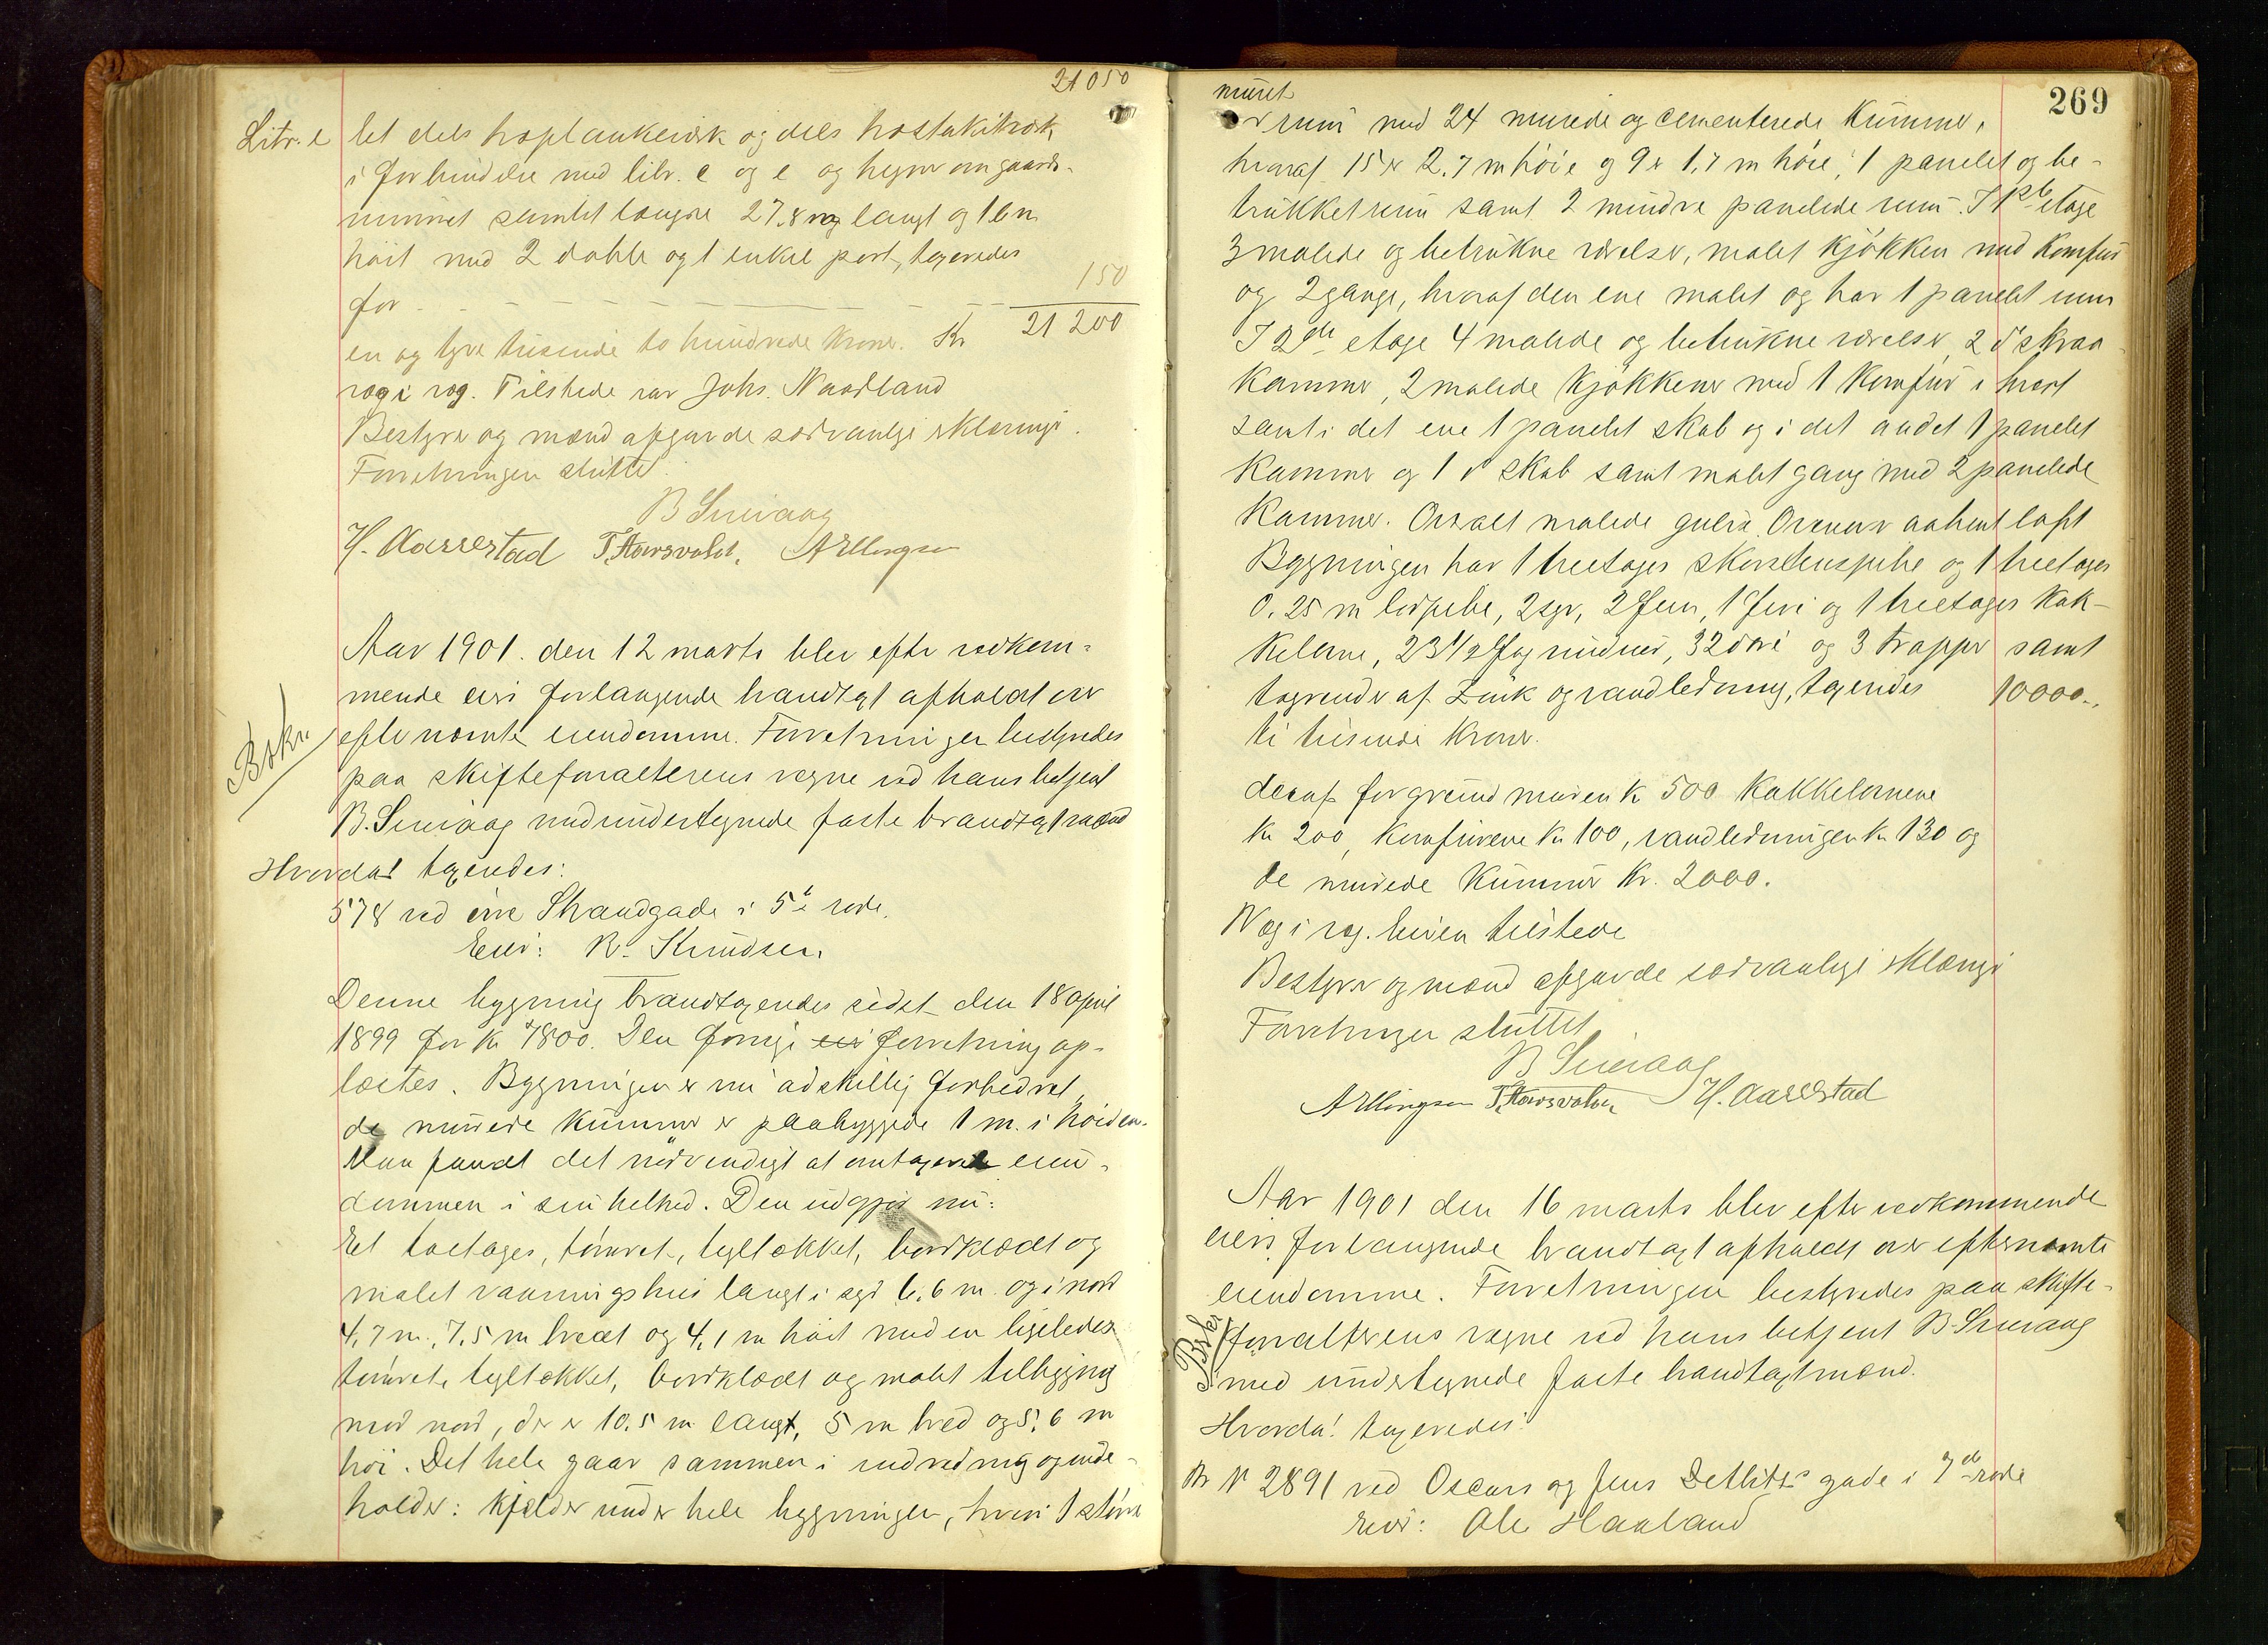 21050
Litr. e let dels høplankeværk og dels høstakitværk
i forbindelse med litr. c og e og hegner om gaards-
rummet samlet længde 27.8 m langt og 1.6 m
høit med 2 doble og 1 enkel port, taxeredes
for - - - 150
en og tyve tusinde to hundrede kroner. Kr. 21 200
væg i væg. Tilstede var Johs. Naadland
Bestyrer og mænd afgav de sædvanlige erklæringer.
Forretningen sluttet.
B Smevaag
H. Aarrestad T. Hausvolut. A Ellingsen
Aar 1901 den 12 marts blev efter vedkom-
mende eiers forlangende brandtaxt afholdt over
efternævnte eiendomme. Forretningen bestyredes
paa skifteforvalterens vegne ved hans betjent
B. Smevaag med undertegnede faste brandtaxtmænd
Bskr.
Hvorda! taxeredes:
578 ved øvre Strandgade i 5te rode.
Eier: R. Knudsen.
Denne bygning brandtaxeredes sidst den 18 april
1899 for kr 7800. Den forrige eier forretning op-
læstes. Bygningen er nu adskillig forbedret,
de murede kummer er paabyggede 1 m. i høiden.
Man fandt det nødvendigt at omtaxere eien-
dommen i sin helhed. Den udgjør nu:
Et toetages, tømret, tegltækket, bordklædt og
malet vaaningshus langt i syd 6.6 m. og i nord
4,7 m., 7,5 m bredt og 4,1 m høit med en ligeledes
tømret, tegltækket, bordklædt og malet tilbygning
mod nord, der er 10.5 m langt, 5 m bred og 5,6 m
høi. Det hele gaar sammen i indredning og inde-
holder: Kjelder under hele bygningen, hvori 1 større
269
muret
rum med 24 murede og cementerede kummer,
hvoraf 15 er 2.7 m høie og 9 er 1,7 m høie, 1 panelet og be-
trukket rum samt 2 mindre panelede rum. I 1ste etage
3 malede og betrukne værelser, malet kjøkken med komfur
og 2 gange, hvoraf den ene malet og har 1 panelet rum
I 2den etage 4 malede og betrukne værelser, 2 do skraa
kammer, 2 malede kjøkkener med 1 komfur i hvert
samt i det ene 1 panelet skab og i det andet 1 panelet
kammer og 1 do skab samt malet gang med 2 panelede
kammer. Overalt malede gulve. Ovenover aabent loft
Bygningen har 1 treetages skorstenspibe og 1 treetages
0.25 m lerpibe, 2 syv, 2 fem, 1 fire og 1 treetages kak-
kelovne, 23 1/2 fag vinduer, 32 døre og 3 trapper samt
tagrender af zink og vandledning, taxeredes 10000.,
ti tusinde kroner.
deraf for grundmuren k 500 kakkelovnene
kr 200, komfurene kr 100, vandledningen kr 130 og
de murede kummer kr. 2000.
Væg i væg. Eieren tilstede
Bestyrer og mænd afgav de sædvanlige erklæringer
Forretningen sluttet
B Smevaag
A Ellingsen T. Hausvolut H. Aarrestad
Aar 1901 den 16 marts blev efter vedkommende
eiers forlangende brandtaxt afholdt over efternævnte
eiendomme. Forretningen bestyredes paa skifte-
forvalterens vegne ved hans betjent B. Smevaag
med undertegnede faste brandtaxtmænd.
Bskr.
Hvorda! taxeredes:
Br N 2891 ved Oscars og Jens Zetlitz's gade i 7de rode
Eier: Ole Haaland